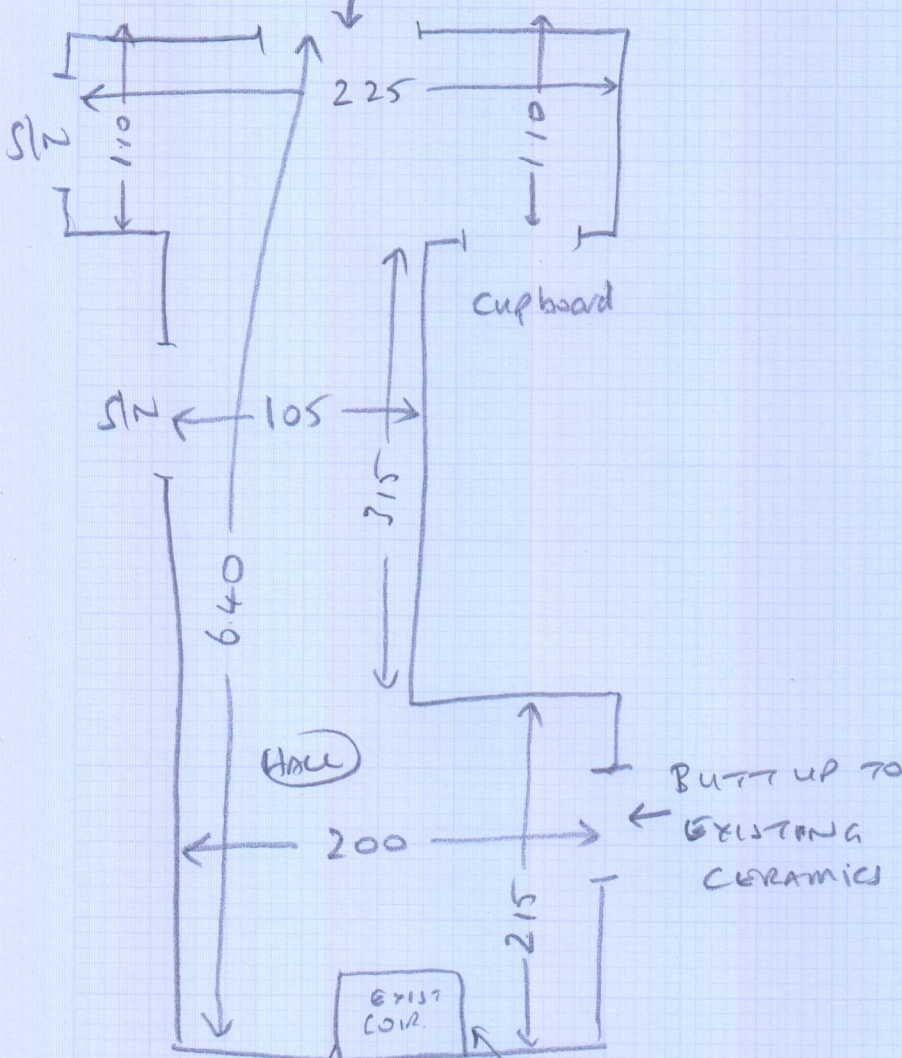 225
S/N
1.10
1.10
Cupboard
S/N
105
315
6.40
HALL
BUTT UP TO
EXISTING
CERAMICS
200
215
EXIST
COIR.